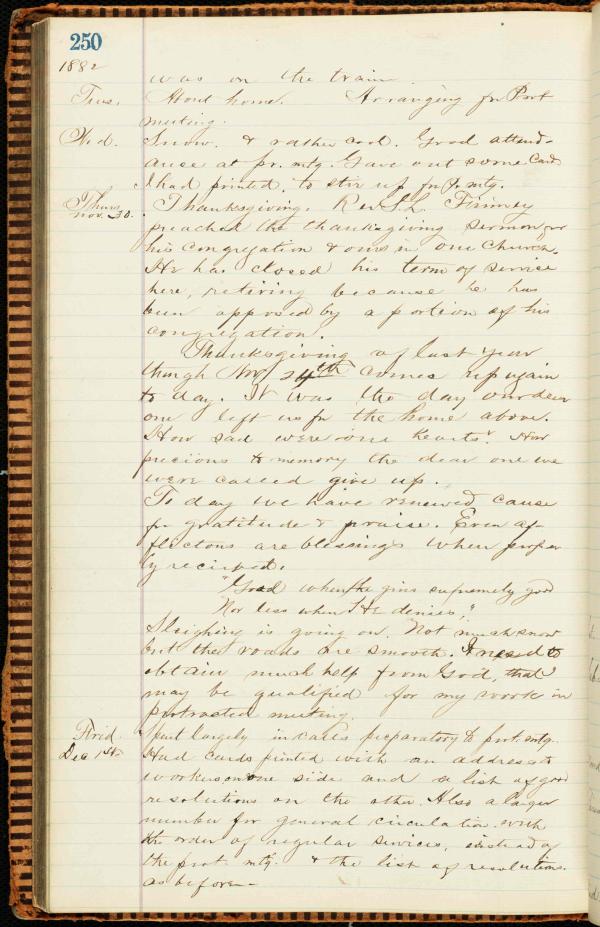 250
1882
was on the train.
Tues. About home. Arranging for Prot
meeting.
Wed. Snow. & rather cool. Good attend-
ance at pr. mtg. Gave out some Cards
I had printed, to stir up for Pr. mtg.
Thurs Nov. 30. Thanksgiving. Rev S. L. Finney
preached the thanksgiving sermon for
his congregation & ours in our Church.
He has closed his term of service
here, retiring because he has
been opposed by a portion of his
congregation.
Thanksgiving of last year
though Nov 24th comes up again
to day. It was the day our dear
one left us for the home above.
How sad were our hearts. How
precious to memory the dear one we
were called give up.
To day we have renewed cause
for gratitude & praise. Even af-
flictons are blessings when proper
ly recieved.
"Good when he gives supremely good
Nor less when He denies,"
Sleighing is going on. Not much snow
but the roads are smooth. I need to
obtain much help from God, that I
may be qualified for my work in
protracted meeting.
Frid. Dec 1st Spent largely in calls preparatory to prot. mtg.
Had cards printed with an address to
workers on one side and a list of good
resolutions on the other. Also a larger
number for general circulation with
the order of regular services, instead of
the prot. mtg. & the list of resolutions.
as before-